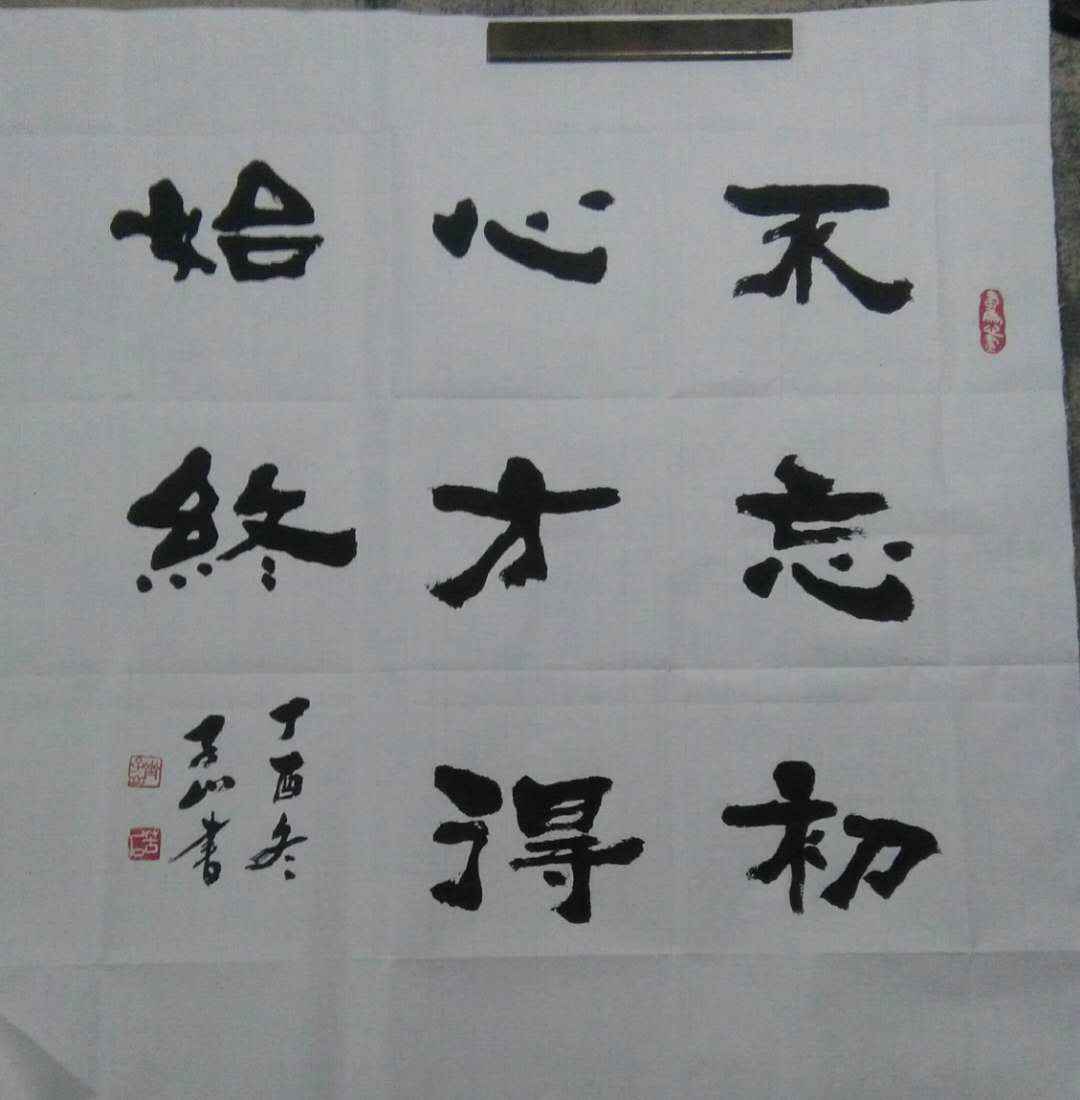 不忘初
心方得
始終
丁酉冬
書